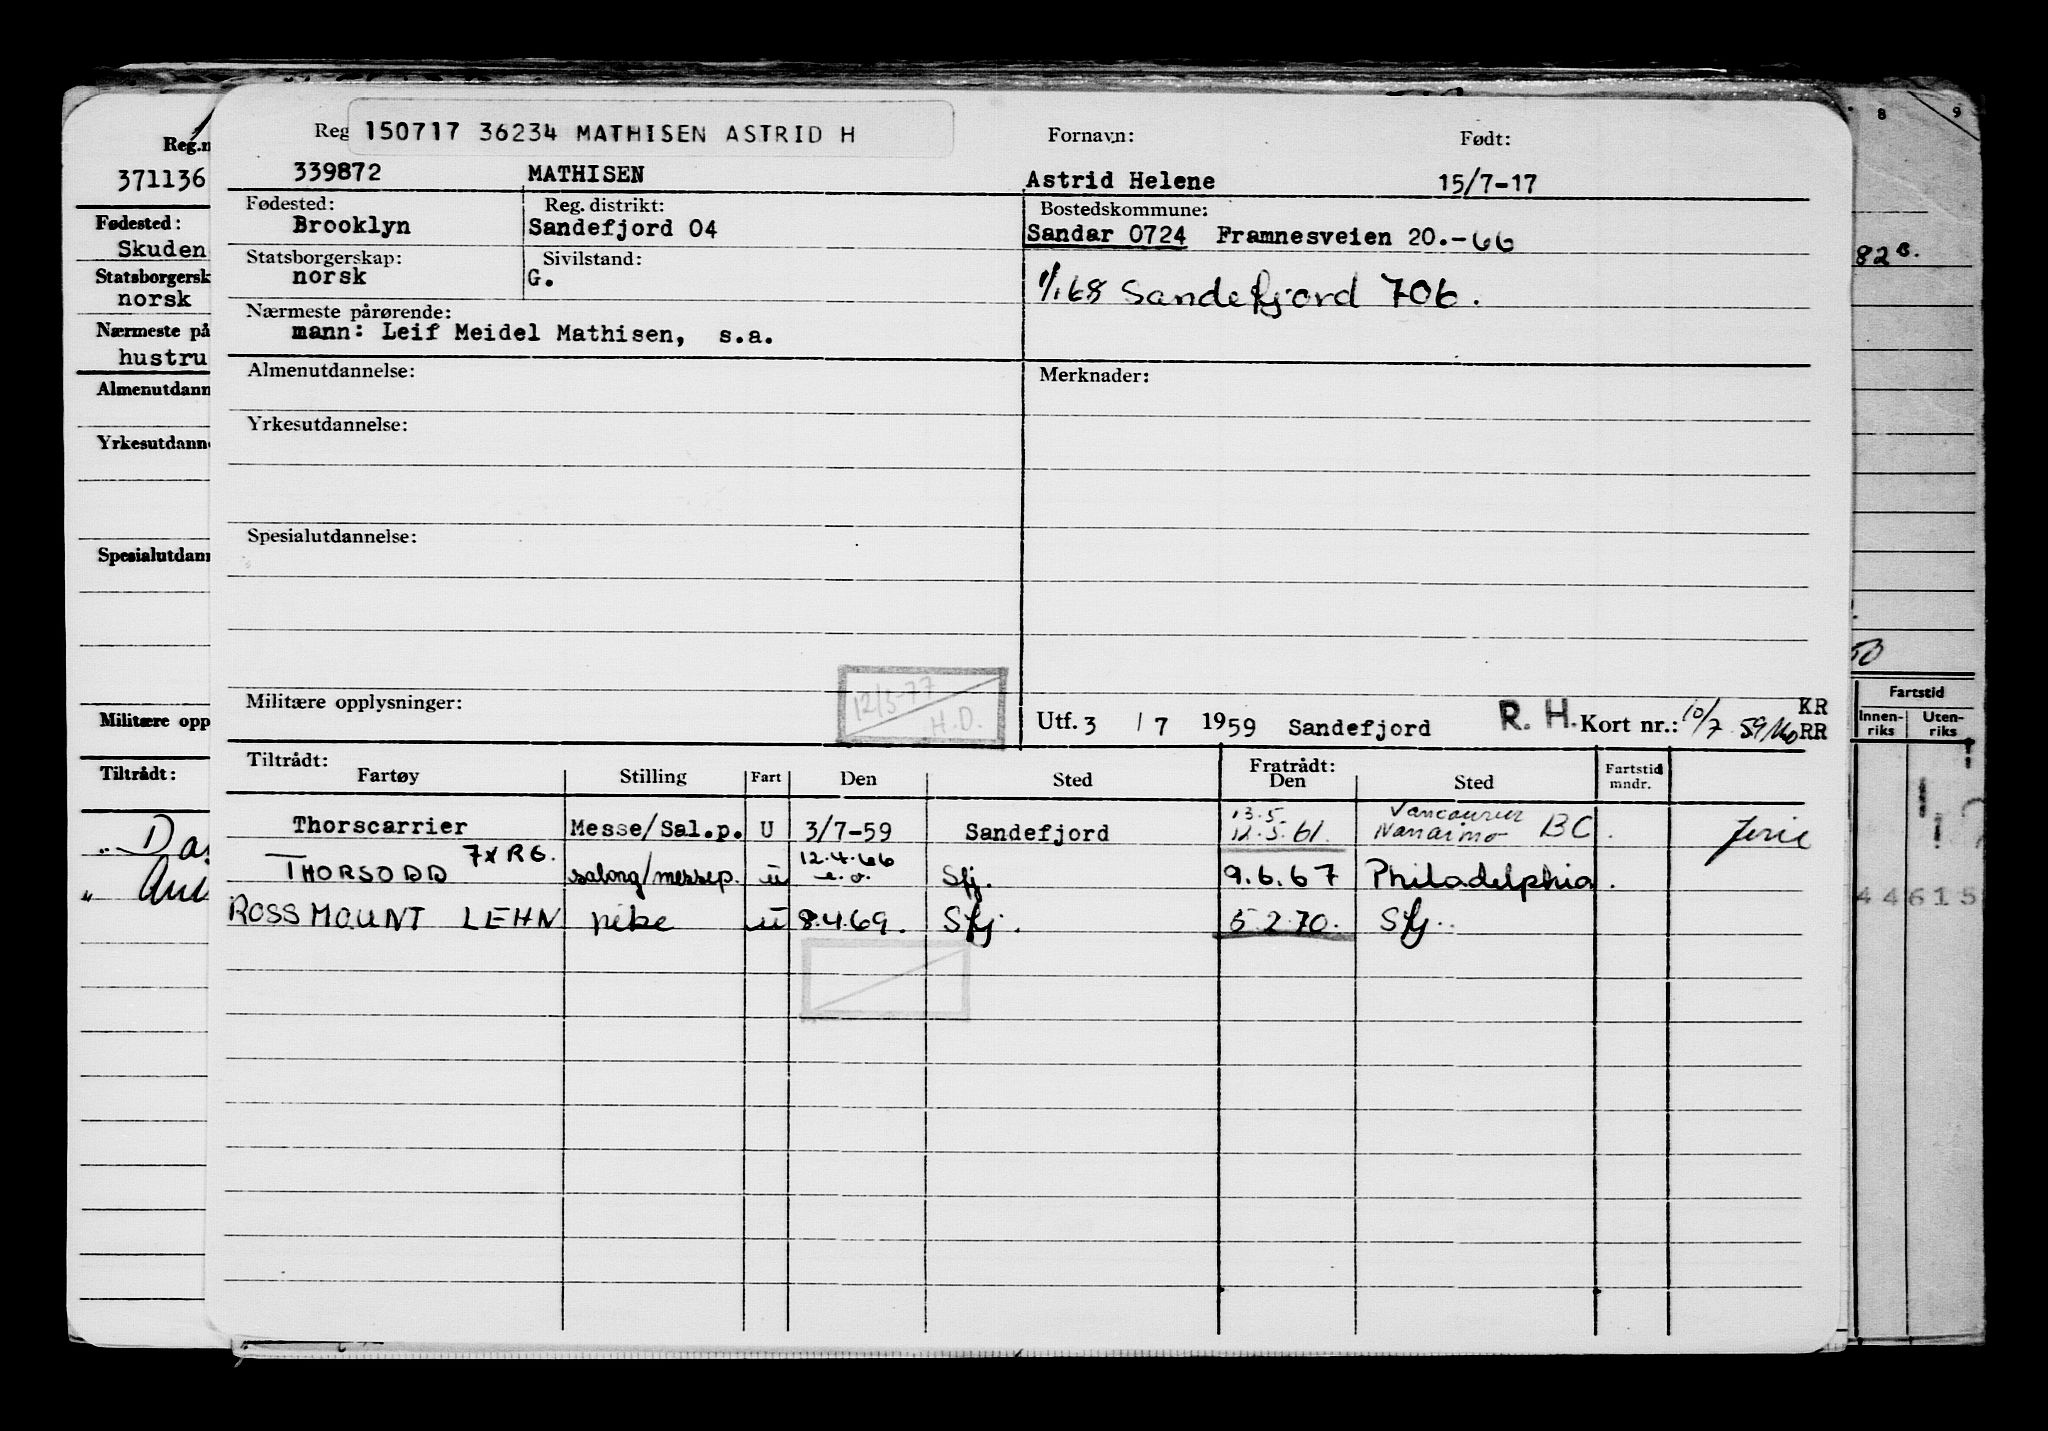 Reg 150717 36234 MATHISEN ASTRID H Fornavn: Født:
339872 MATHISEN Astrid Helene 15/7-17
Fødested: Reg. distrikt: Bostedskommune:
Brooklyn Sandefjord 04 Sandar 0724 Framnesveien 20.-66
Statsborgerskap: Sivilstand:
norsk G. 1/1 68 Sandefjord 706.
Nærmeste pårørende:
mann: Leif Meidel Mathisen, s.a.
Almenutdannelse: Merknader:
Yrkesutdannelse:
Spesialutdannelse:
Militære opplysninger: 12/5-77 H.D.
Utf. 3 / 7 1959 Sandefjord R. H. Kort nr.: 10/7 59 KR RR
Tiltrådt: Fratrådt:
Fartøy Stilling Fart Den Sted Den Sted Fartstid mndr.
13.5. Vancouver
Thorscarrier Messe/Sal.p. U 3/7-59 Sandefjord 12.5.61. Nanaimo BC.
7 x RG. 12.4.66
THORSODD salong/messep. u Sfj. 9.6.67 Philadelphia.
ROSSMOUNT LEHN pike u 8.4.69. Sfj. 5.2.70. Sfj.
Reg.n
371136
Fødested:
Skuden
Statsborgersk
norsk
Nærmeste på
hustru
Almenutdann
Yrkesutdann
Spesialutdan
Militære opp
Tiltrådt:
8 9
82
Fartstid
Innenriks Utenriks
44615